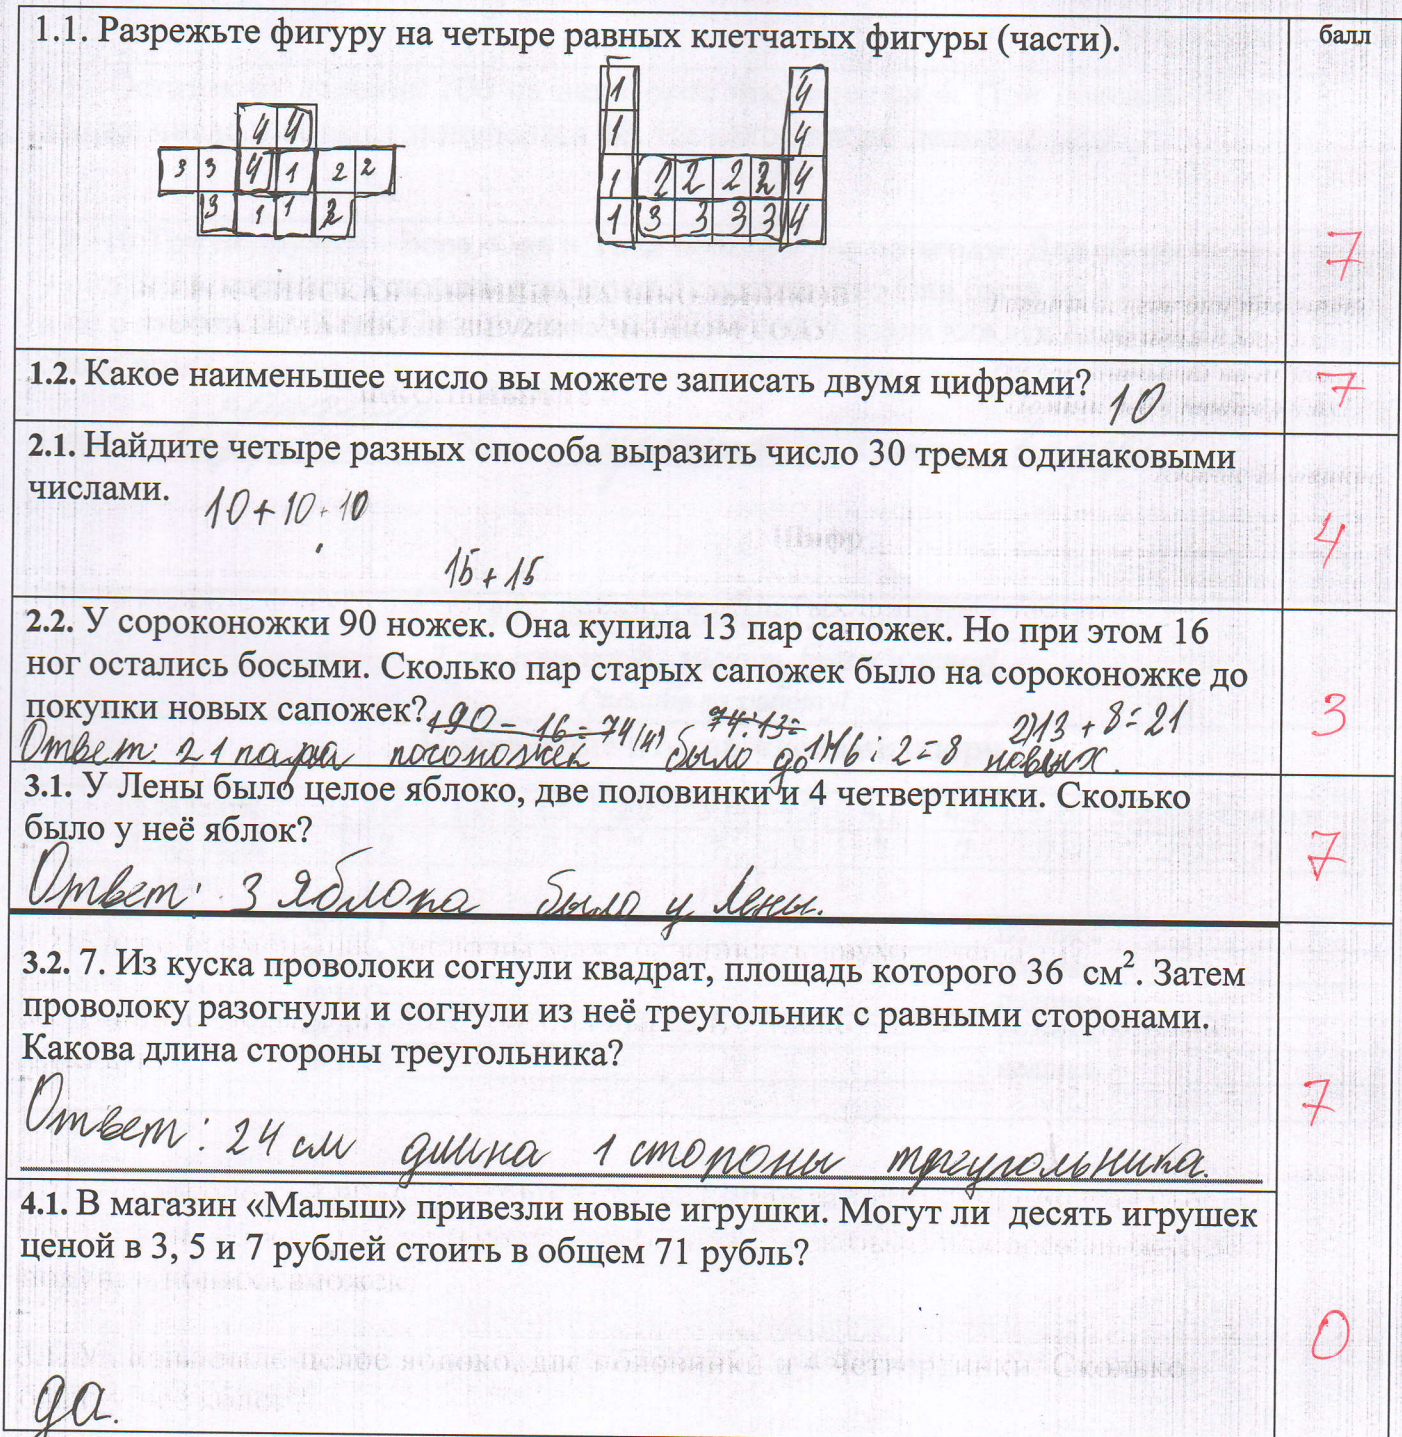 1.1. Разрежьте фигуру на четыре равных клетчатых фигуры (части).
балл
4 4
3 3 4 1 2 2
3 1 1 2
1 4
1 4
1 2 2 2 2 4
1 3 3 3 3 4
7
1.2. Какое наименьшее число вы можете записать двумя цифрами? 10
7
2.1. Найдите четыре разных способа выразить число 30 тремя одинаковыми
числами. 10+10+10
15+15
4
2.2. У сороконожки 90 ножек. Она купила 13 пар сапожек. Но при этом 16
ног остались босыми. Сколько пар старых сапожек было на сороконожке до
покупки новых сапожек? 90-16=74(н) 74:13= 2)13+8=21
Ответ: 21 пара было до 1)16:2=8 новых.
3
3.1. У Лены было целое яблоко, две половинки и 4 четвертинки. Сколько
было у неё яблок?
Ответ: 3 яблока было у Лены.
7
3.2. 7. Из куска проволоки согнули квадрат, площадь которого 36 см². Затем
проволоку разогнули и согнули из неё треугольник с равными сторонами.
Какова длина стороны треугольника?
Ответ: 24 см длина 1 стороны треугольника.
7
4.1. В магазин «Малыш» привезли новые игрушки. Могут ли десять игрушек
ценой в 3, 5 и 7 рублей стоить в общем 71 рубль?
да.
0